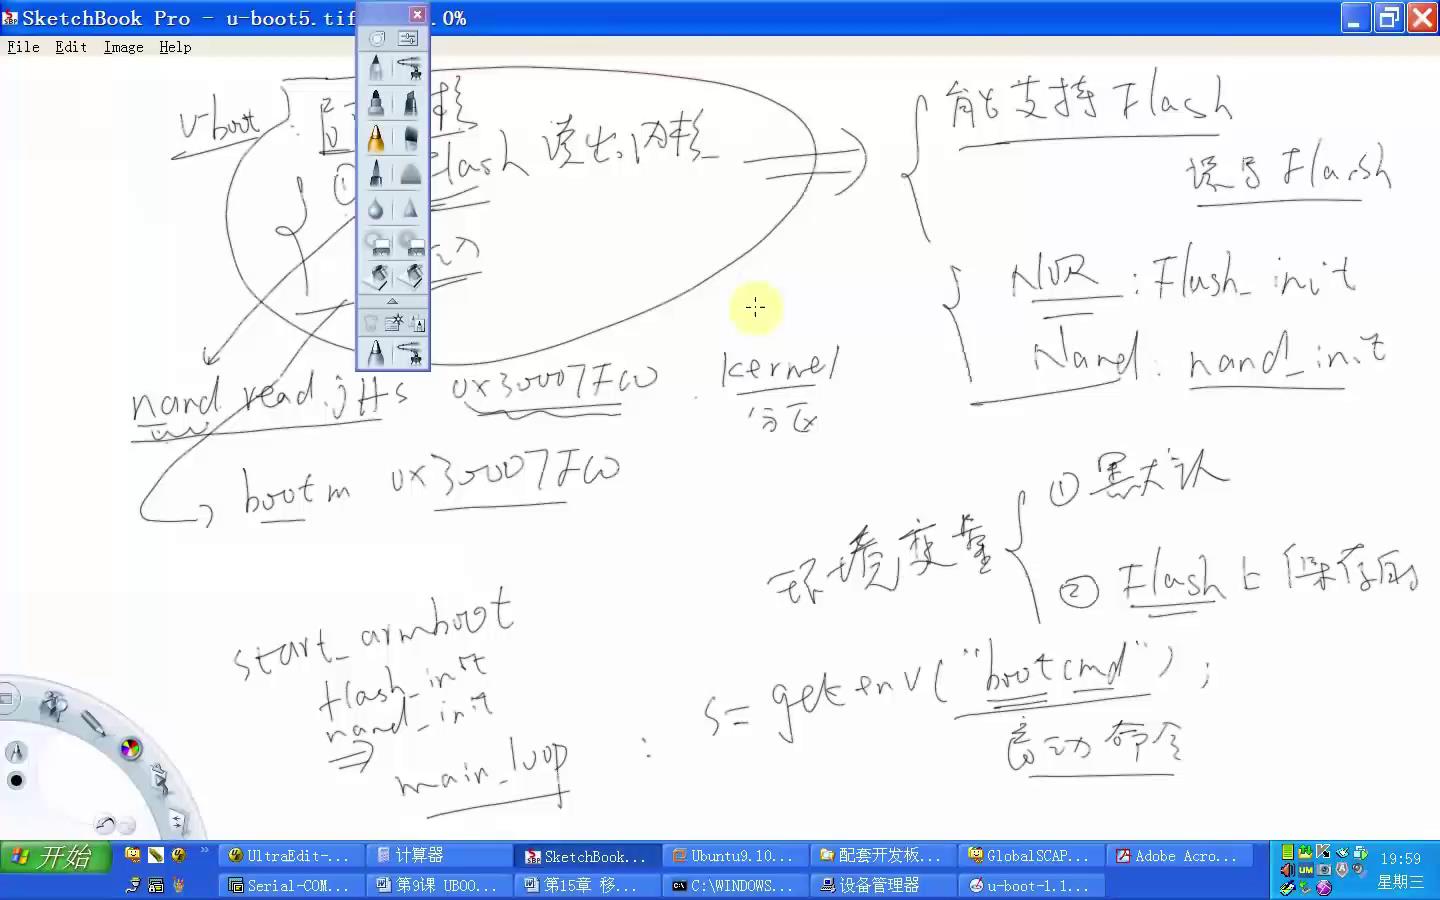 SketchBook Pro - u-boot5.tif
.0%
File Edit Image Help
u-boot :
核
能支持Flash
Flash 读出内核
读写Flash
NOR : Flash_init
Nand : nand_init
nand read.jffs 0x30007FC0 . kernel
分区
bootm 0x30007FC0
环境变量
① 默认
② Flash上保存的
start_armboot
flash_init
nand_init
main_loop :
s = getenv("bootcmd");
启动命令
开始
UltraEdit-...
计算器
SketchBook...
Ubuntu9.10...
配套开发板...
GlobalSCAP...
Adobe Acro...
19:59
Serial-COM...
第9课 UBOO...
第15章 移...
C:\WINDOWS...
设备管理器
u-boot-1.1...
星期三